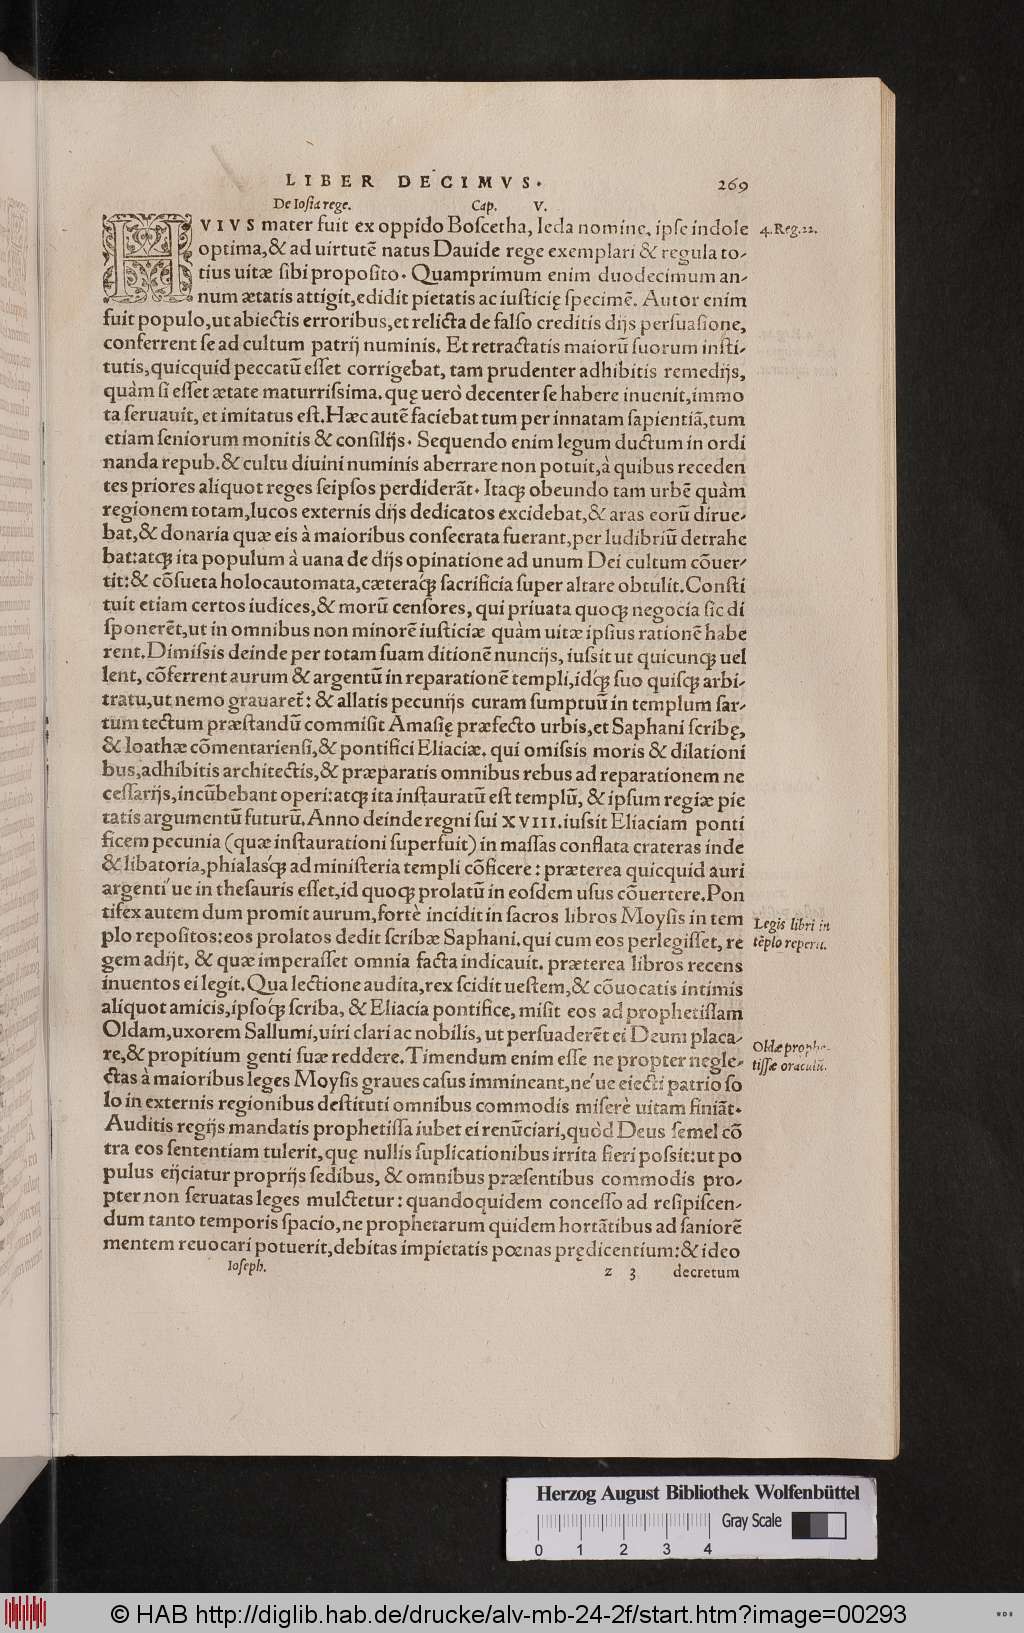 LIBER DECIMVS. 269
De Iosia rege. Cap. V.
HVIVS mater fuit ex oppido Boscetha, Ieda nomine, ipse indole
4. Reg. 22.
optima, & ad uirtutē natus Dauide rege exemplari & regula to-
tius uitæ sibi proposito. Quamprimum enim duodecimum an-
num ætatis attigit, edidit pietatis ac iusticię specimē. Autor enim
fuit populo, ut abiectis erroribus, et relicta de falso creditis dijs persuasione,
conferrent se ad cultum patrij numinis. Et retractatis maiorū suorum insti-
tutis, quicquid peccatū esset corrigebat, tam prudenter adhibitis remedijs,
quàm si esset ætate maturrissima. quę uerò decenter se habere inuenit, immo
ta seruauit, et imitatus est. Hæc autē faciebat tum per innatam sapientiā, tum
etiam seniorum monitis & consilijs. Sequendo enim legum ductum in ordi
nanda repub. & cultu diuini numinis aberrare non potuit, à quibus receden
tes priores aliquot reges seipsos perdiderāt. Itaq; obeundo tam urbē quàm
regionem totam, lucos externis dijs dedicatos excidebat, & aras eorū dirue-
bat, & donaria quæ eis à maioribus consecrata fuerant, per ludibriū detrahe
bat: atq; ita populum à uana de dijs opinatione ad unum Dei cultum cōuer-
tit: & cōsueta holocautomata, cæteraq́; sacrificia super altare obtulit. Consti
tuit etiam certos iudices, & morū censores, qui priuata quoq; negocia sic di
sponerēt, ut in omnibus non minorē iusticiæ quàm uitæ ipsius rationē habe
rent. Dimissis deinde per totam suam ditionē nuncijs, iussit ut quicunq; uel
lent, cōferrent aurum & argentū in reparationē templi, idq́; suo quisq; arbi-
tratu, ut nemo grauaret̄: & allatis pecunijs curam sumptuū in templum sar-
tum tectum præstandū commisit Amasię præfecto urbis, et Saphani scribę,
& Ioathæ cōmentariensi, & pontifici Eliaciæ. qui omissis moris & dilationi
bus, adhibitis architectis, & præparatis omnibus rebus ad reparationem ne
cessarijs, incūbebant operi: atq; ita instauratū est templū, & ipsum regiæ pie
tatis argumentū futurū. Anno deinde regni sui XVIII. iussit Eliaciam ponti
ficem pecunia (quæ instaurationi superfuit) in massas conflata crateras inde
& libatoria, phialasq́; ad ministeria templi cōficere: præterea quicquid auri
argenti´ue in thesauris esset, id quoq; prolatū in eosdem usus cōuertere. Pon
tifex autem dum promit aurum, fortè incidit in sacros libros Moysis in tem
Legis libri in
plo repositos: eos prolatos dedit scribæ Saphani, qui cum eos perlegisset, re
tēplo reperti.
gem adijt, & quæ imperasset omnia facta indicauit. præterea libros recens
inuentos ei legit. Qua lectione audita, rex scidit uestem, & cōuocatis intimis
aliquot amicis, ipsoq́; scriba, & Eliacia pontifice, misit eos ad prophetissam
Oldam, uxorem Sallumi, uiri clari ac nobilis, ut persuaderēt ei Deum placa-
Oldæ prophe-
re, & propitium genti suæ reddere. Timendum enim esse ne propter negle-
tissæ oraculū.
ctas à maioribus leges Moysis graues casus immineant, ne´ue eiecti patrio so
lo in externis regionibus destituti omnibus commodis miserè uitam finiāt.
Auditis regijs mandatis prophetissa iubet ei renūciari, quòd Deus semel cō
tra eos sententiam tulerit, quę nullis suplicationibus irrita fieri possit: ut po
pulus eijciatur proprijs sedibus, & omnibus præsentibus commodis pro-
pter non seruatas leges mulctetur: quandoquidem concesso ad resipiscen-
dum tanto temporis spacio, ne prophetarum quidem hortātibus ad saniorē
mentem reuocari potuerit, debitas impietatis pœnas prędicentium: & ideo
Ioseph. z 3 decretum
Herzog August Bibliothek Wolfenbüttel
Gray Scale
0 1 2 3 4
© HAB http://diglib.hab.de/drucke/alv-mb-24-2f/start.htm?image=00293